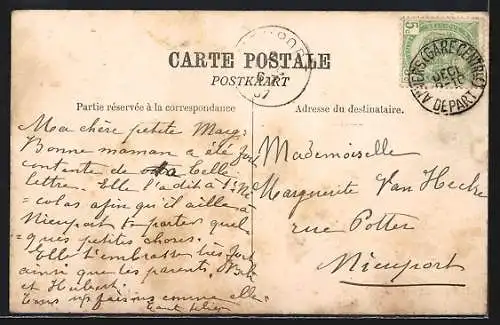 CARTE POSTALE
POSTKAART
Partie réservée à la correspondance
Adresse du destinataire.
ANVERS (GARE CENTRALE)
DEPART
5
Ma chère petite Marg:
Bonne maman a été fort
contente de ta belle
lettre. Elle l'a dit à St Ni
colas afin qu'il aille à
Nieuport te porter quel
ques petites choses.
Elle t'embrasse très fort
ainsi que les parents,
et Hubert.
Nous en faisons comme elle.
Mademoiselle
Marguerite Van Hecke
rue Potter
Nieuport